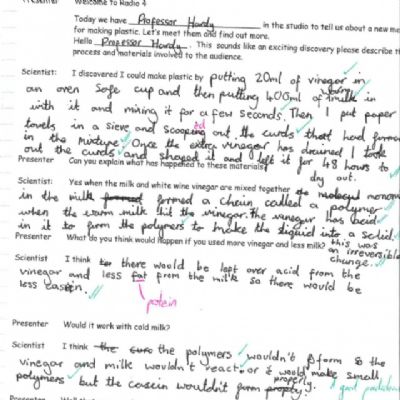 Presenter Welcome to Radio 4
Today we have Professor Hardy in the studio to tell us about a new me
for making plastic. Let's meet them and find out more.
Hello Professor Hardy. This sounds like an exciting discovery please describe th
process and materials involved to the audience.
Scientist: I discovered I could make plastic by putting 20ml of vinegar in
an oven safe cup and then putting 400ml of warm milk in
with it and mixing it for a few seconds. Then I put paper
towels in a sieve and scooped out the curds that had formed
in the mixture. Once the extra vinegar has drained I took
out the curds and shaped it and left it for 48 hours to
dry out.
Presenter Can you explain what has happened to these materials
Scientist: Yes when the milk and white wine vinegar are mixed together monom
in the milk formed a chain called a polymer
when the warm milk hit the vinegar. The vinegar has acid
in it to form the polymers to make the liquid into a solid.
this was an irreversible change.
Presenter What do you think would happen if you used more vinegar and less milk?
Scientist I think there would be left over acid from the
vinegar and less fat from the milk so there would be
less casein.
protein
Presenter Would it work with cold milk?
Scientist I think the polymers wouldn't form & the
vinegar and milk wouldn't react. or it would make small
polymers but the casein wouldn't form properly.
good